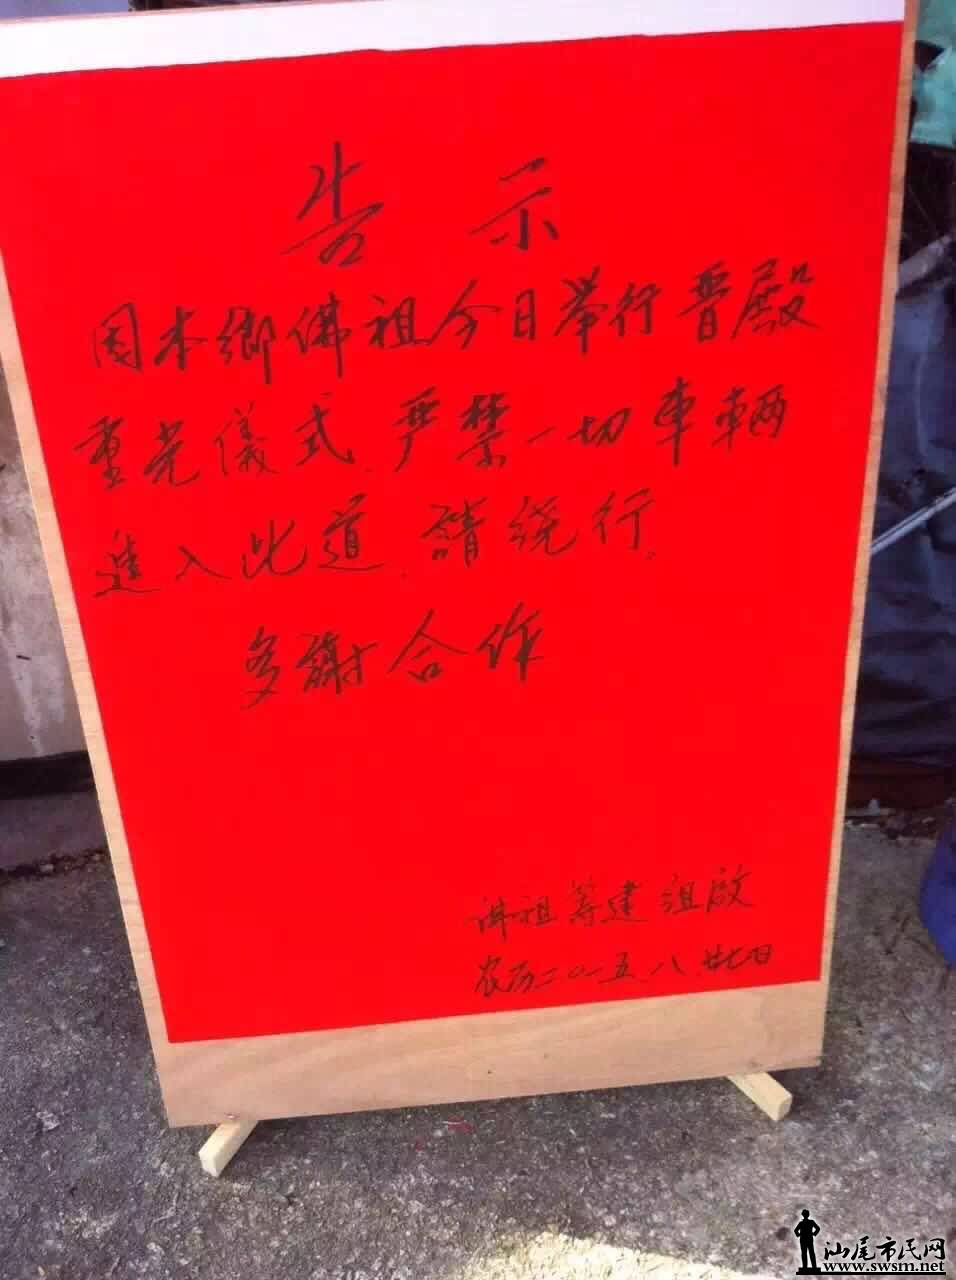 告示
因本鄉佛祖今日举行晋殿
重光儀式.严禁一切車輛
進入此道.請绕行.
多謝合作
佛祖筹建组啟
农历二〇一五.八.廿七日
汕尾市民网
www.swsm.net